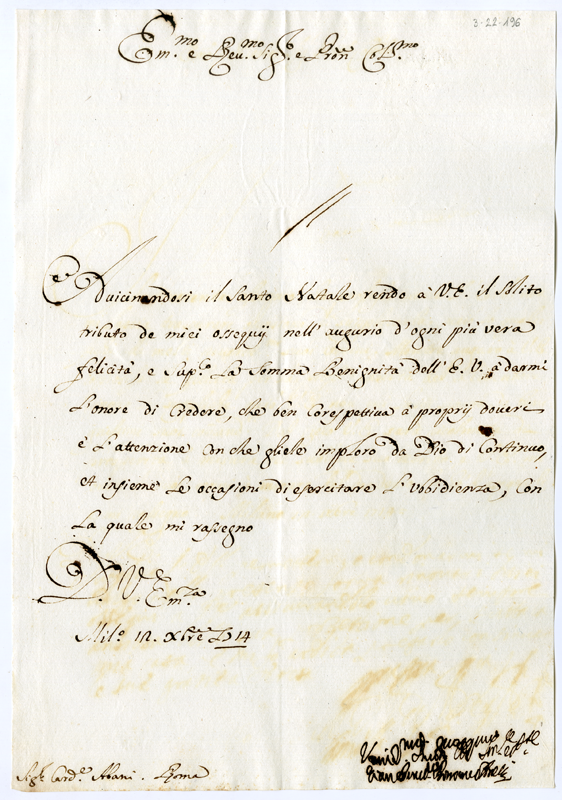 3-22-196
Em.mo e Rev.mo Sig.r e Pron Col.mo
Avuicinandosi il Santo Natale rendo à V.E. il solito
tributo de miei ossequij nell'augurio d'ogni più vera
felicità, e sup.co La somma Benignità dell'E.V. à darmi
L'onore di Credere, che ben corespettiva à proprij doveri
è L'attenzione con che gliele imploro da Dio di Continuo,
et insieme Le occasioni di esercitare L'vbidienza, con
La quale mi rassegno
D. V. Em.za
Mil.o 12. Xbre 1714
Sig.r Card.e Albani. Roma